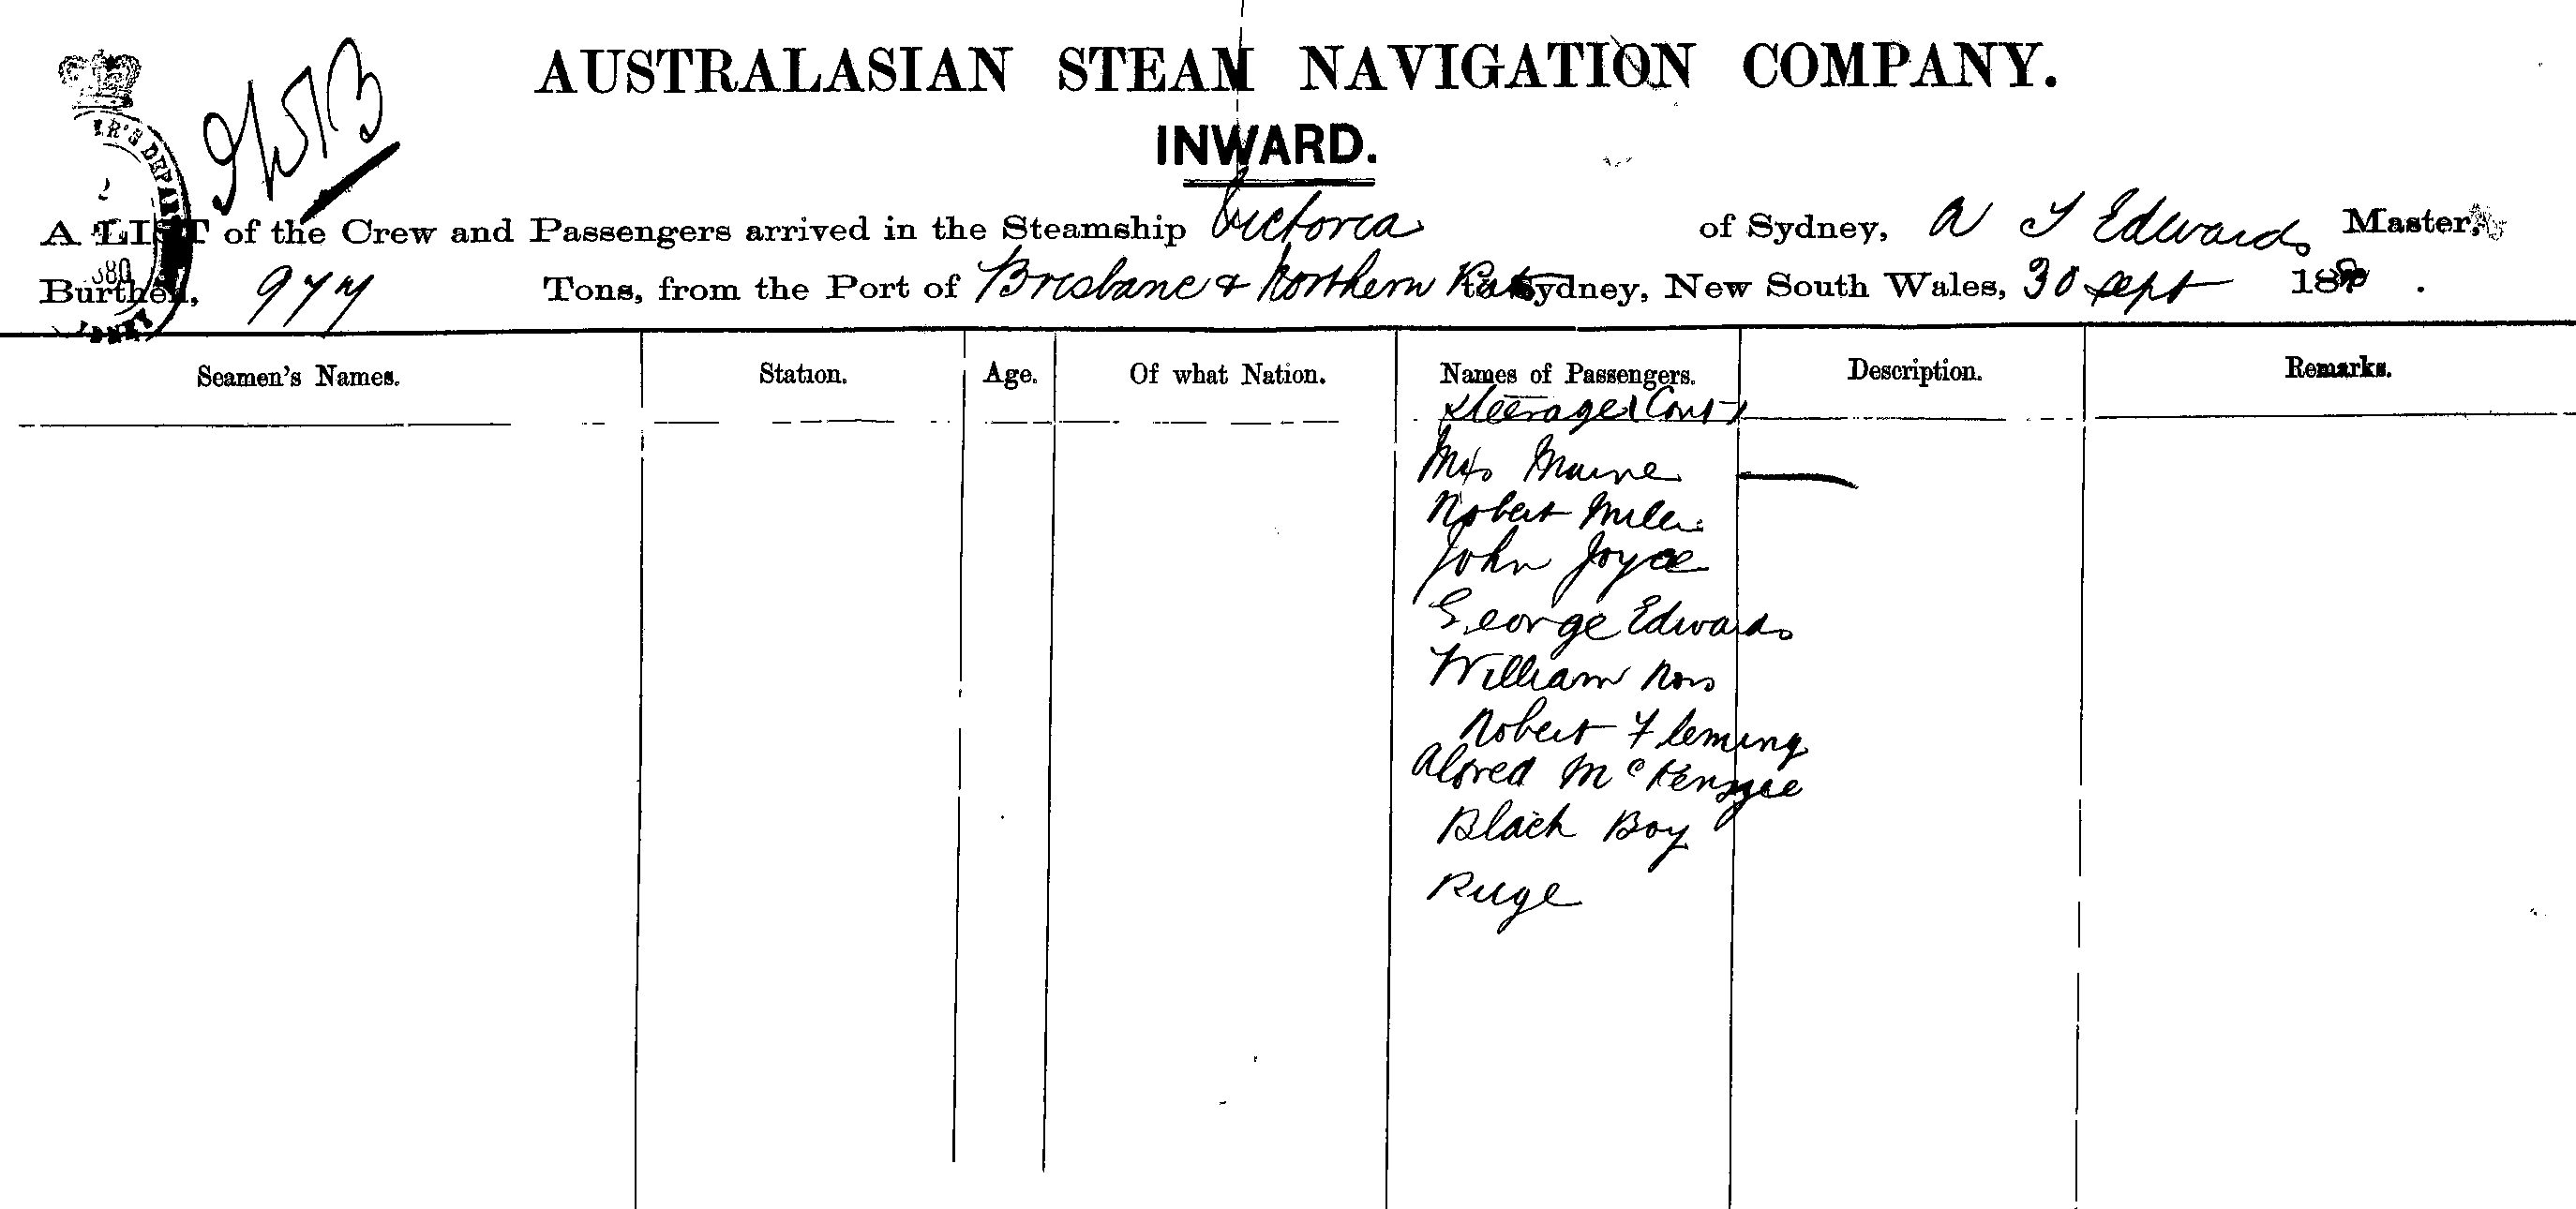 AUSTRALASIAN STEAM NAVIGATION COMPANY.
INWARD.
A LIST of the Crew and Passengers arrived in the Steamship Victoria of Sydney, A T Edwards Master,
Burthen, 977 Tons, from the Port of Brisbane & Northern to Sydney, New South Wales, 30 Sept 1880.
Seamen's Names. Station. Age. Of what Nation. Names of Passengers. Description. Remarks.
Steerage Cont
Mrs
Robert Miller
John Joyce
George Edwards
William Ross
Robert Fleming
Alfred McKenzie
Black Boy
Ruge